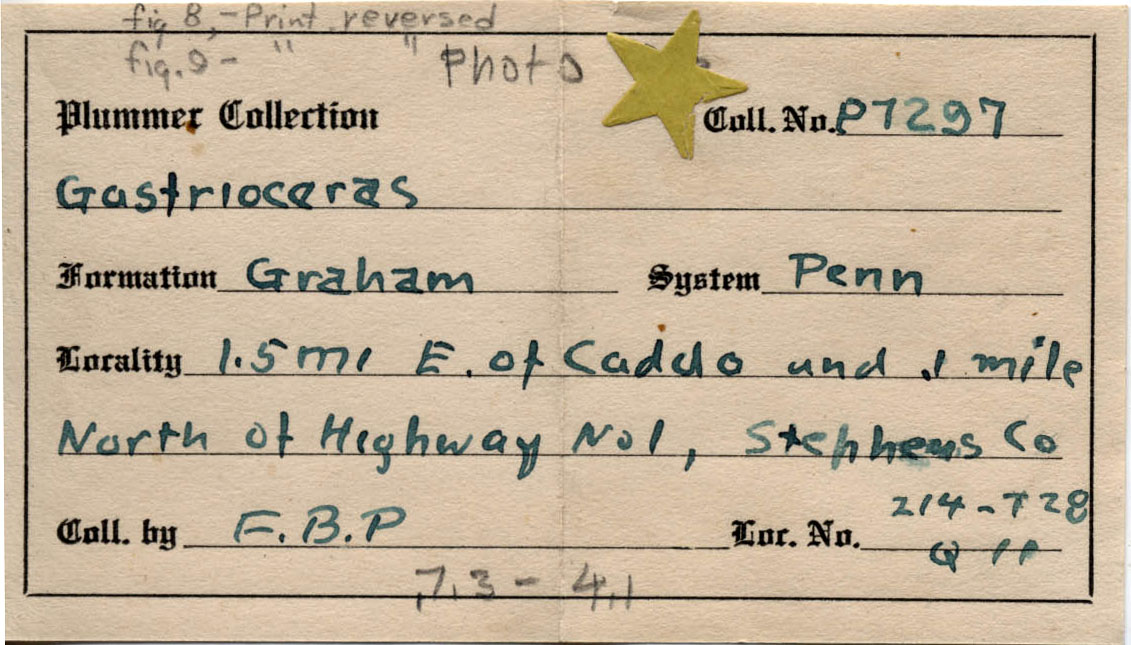 fig 8, - Print reversed
fig. 9 - " "
Photo
Plummer Collection
Coll. No. P7297
Gastrioceras
Formation Graham System Penn
Locality 1.5 mi E. of Caddo and .1 mile
North of Highway No1, Stephens Co
214-T28
Coll. by F.B.P Loc. No.
Q 11
7.3 - 4.1